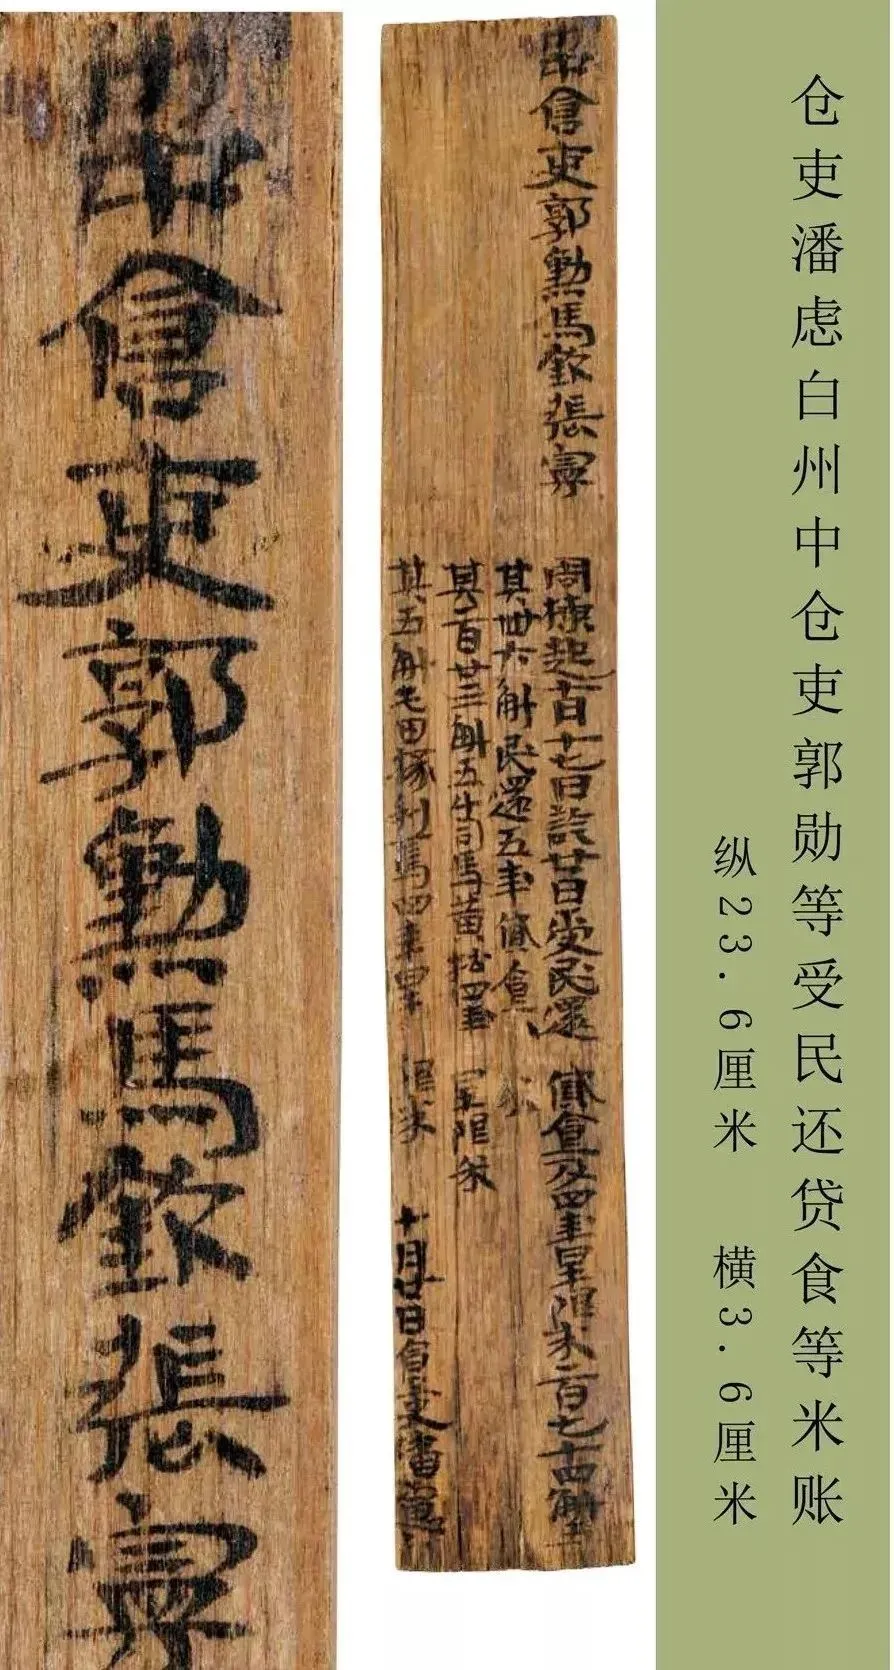 仓吏潘虑白州中仓吏郭勋等受民还贷食等米账
纵23.6厘米 横3.6厘米
中倉吏郭勳馬欽張
周棟起 日十七日訖廿日受民還 貸食及四年 限米二百七十四斛五
其卅六斛民還五年貸食米
其二百廿三斛五斗司馬黃松四年 限米
其五斛屯田掾利焉四年 限米 十月廿日倉吏潘慮
中倉吏郭勳馬欽張